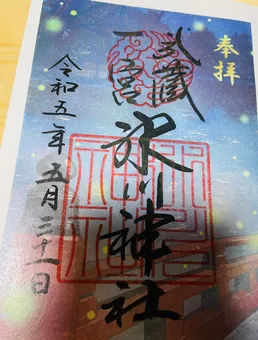 奉拝
武蔵
一宮
氷川神社
令和五年五月三十一日